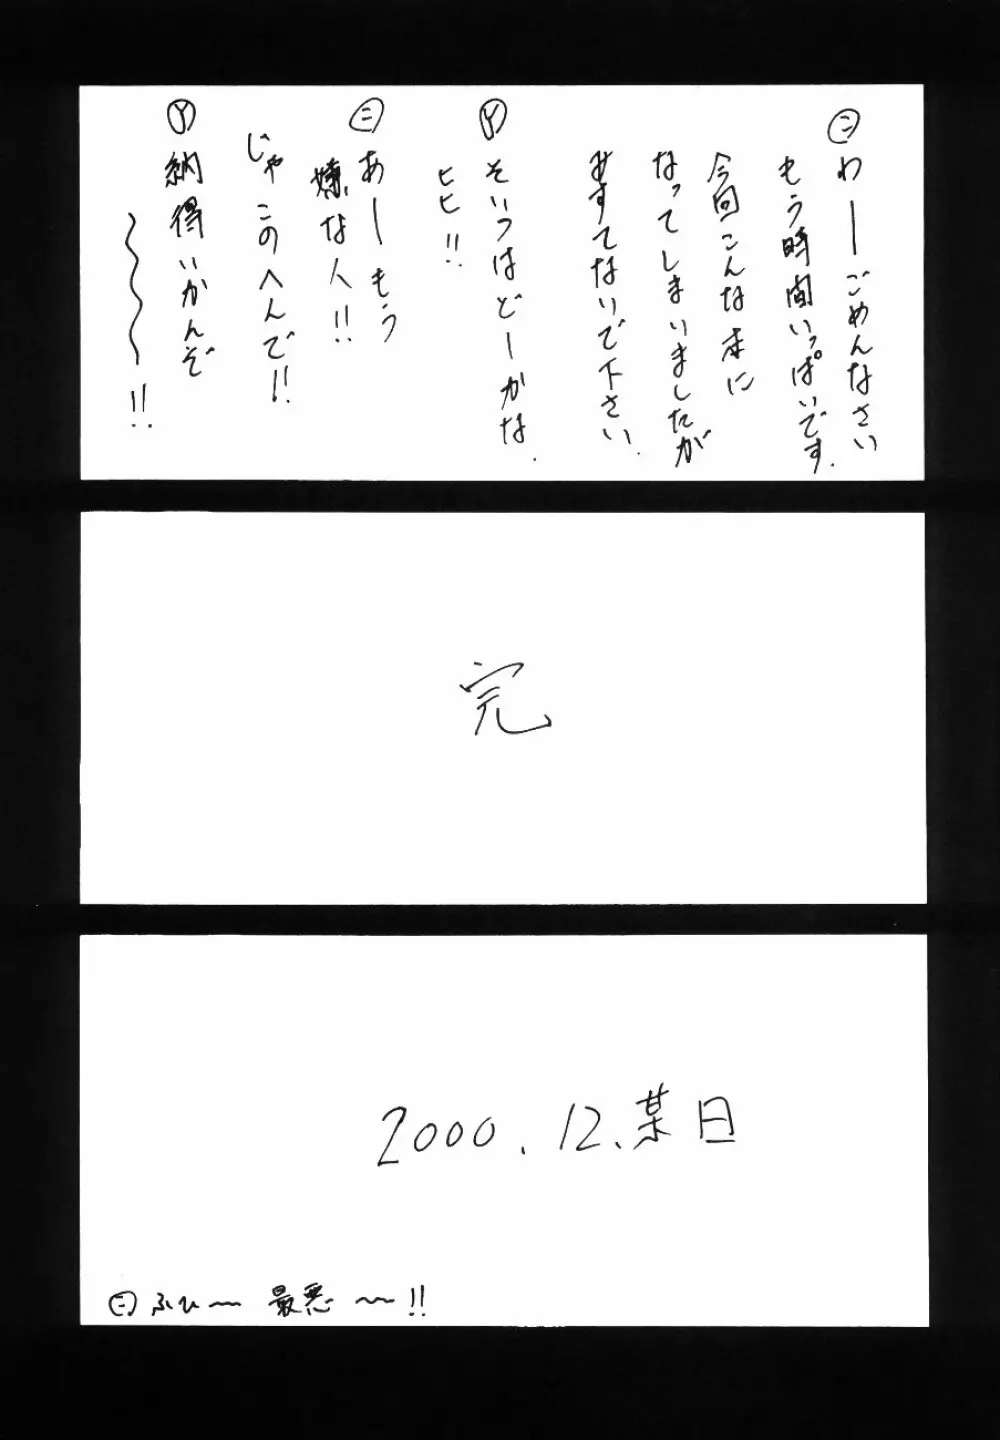 ㊁ わーごめんなさい
もう時間いっぱいです.
今回こんな本に
なってしまいましたが
みすてないで下さい.
Ⓨ そいつはどーかな.
ヒヒ!!
㊁ あーもう
嫌な人!!
じゃこのへんで!!
Ⓨ 納得いかんぞ
〜〜〜〜!!
完
2000.12.某日
㊁ ふひ〜 最悪〜!!